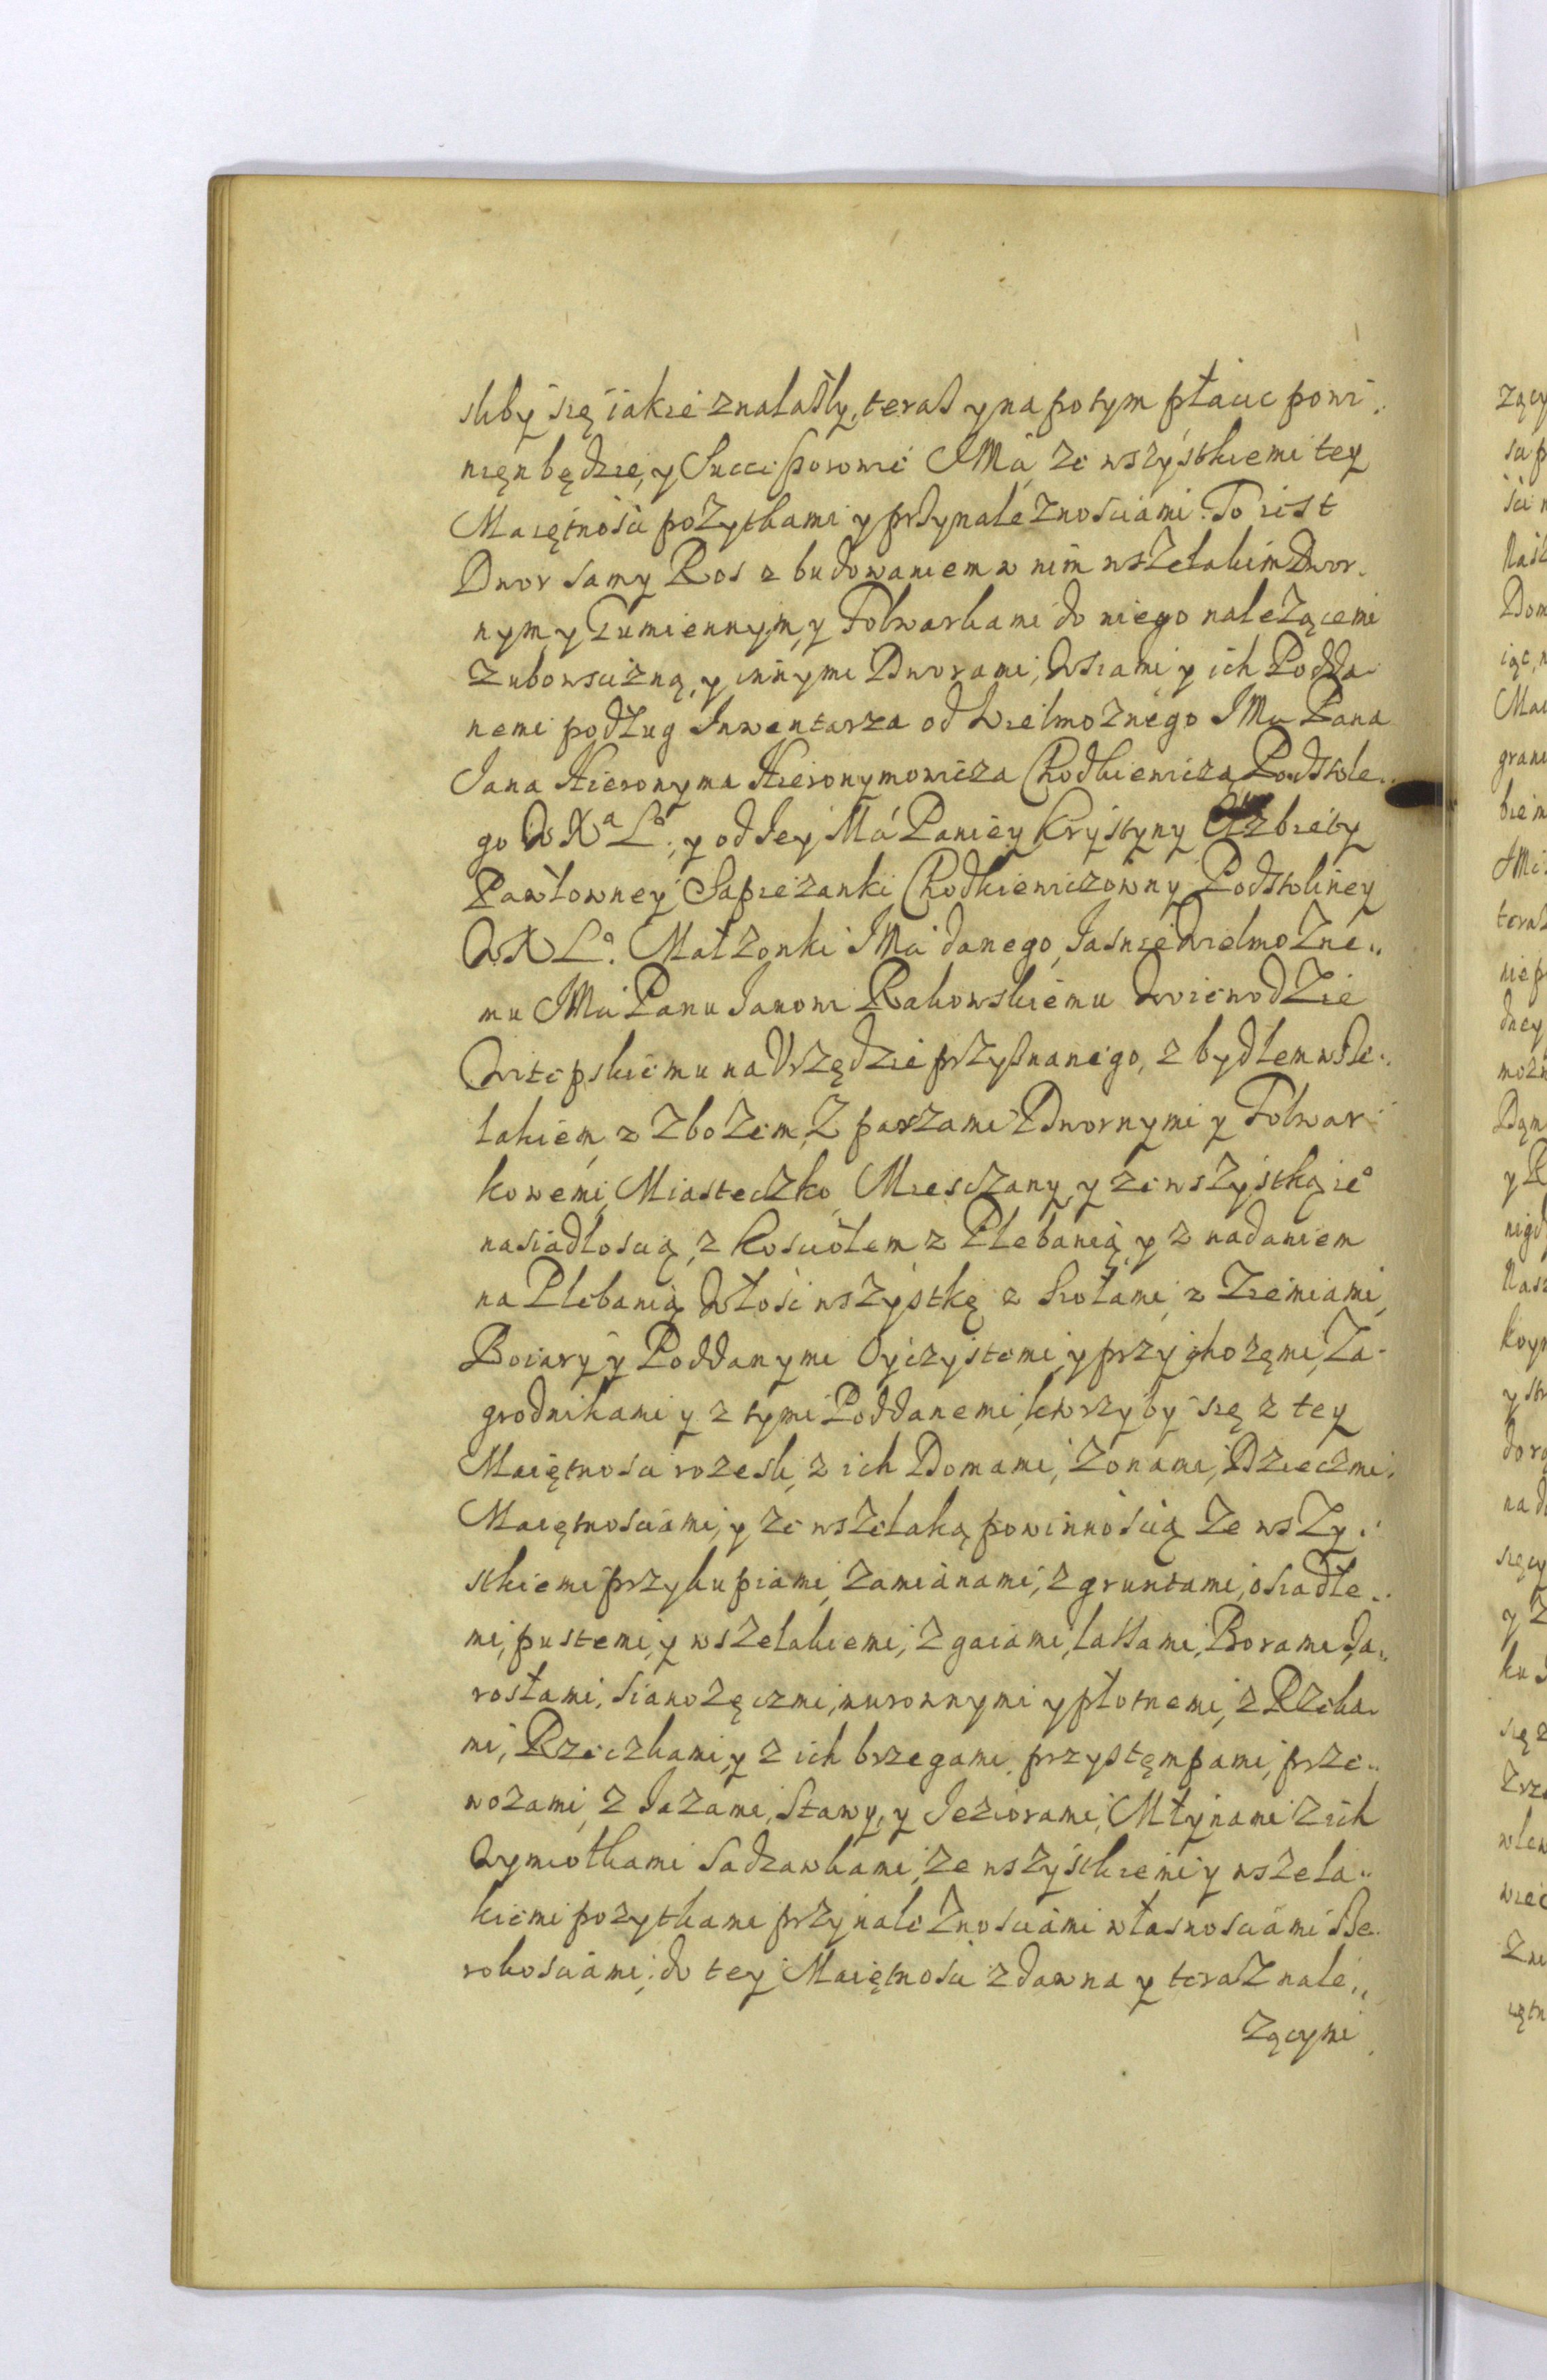 sliby się iakie znalasly, teras y na potym płacic powi
nięn będzie, y Succeszorowie JMa ze wszystkiemi tey
Maiętności pożytkami y przynależnościami. To iest
Dwor samy Ros z budowaniem w nim wszelakim Dwor
nym, y Gumiennym, y Folwarkami do niego należącemi
Zubowsciżną, y innymi Dworami, Wsiami y ich Podda
nemi podług Inwentarza od Wielmożnego JMu Pana
Jana Hieronyma Hieronymowicza Chodkiewicza Podstole
go W Xa Lo, y od Jey Má Paniey Krystyny Elzbiety
Pawłowney Sapieżanki Chodkiewiczowny Podstoliney
W X Lo. Małżonki JMa danego, Jasnie Wielmożne
mu JMa Panu Janowi Rakowskiemu Woiewodzie
Witepskiemu na Vrzędzie przyznanego, z bydłem wsze
lakiem, z zbożem, z paszami Dwornymi y Folwar
kowemi, Miasteczko, Miesczany, y ze wszystką ieo
nasiadłoscią, z Kosciołem z Plebanią y z nadaniem
na Plebanią Włość wszystkę z Siołami, z Ziemiami
Boiary y Poddanymi Oyczystemi, y przychożęmi, Za
grodnikami y z tymi Poddanemi, ktorzyby się z tey
Maiętnosci rozesli, z ich Domami, Zonami, Dzieczmi,
Maiętnosciami, y ze wszelaką powinnoscią ze wszy
stkiemi przykupiami, zamianami, z gruntami, osiadłe
mi, pustemi, y wszelakiemi, z gaiami, lassami, Borami, Za
rosłami, Sianożęczmi, murownymi y płotnemi, z Rzeka
mi, Rzeczkami, y z ich brzegami, przystęmpami, prze
wozami, z Jazami, Stawy, y Jeziorami, Młynami z ich
Wymiołkami Sadzawkami, ze wszystkiemi y wszela
kiemi pożytkami przynależnosciami własnosciami Sze
rokosciami, do tey Maiętnosci zdawna y teraz nale
żącymi